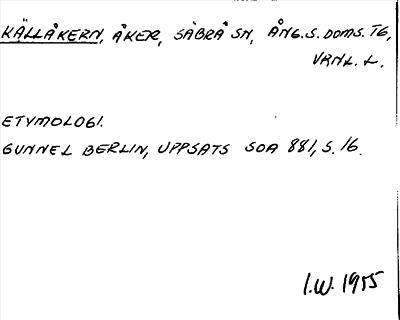 KÄLLÅKERN, ÅKER, SÄBRÅ SN, ÅNG.S.DOMS.TG,
VRNL. L.
ETYMOLOGI.
GUNNEL BERLIN, UPPSATS SOA 881, S. 16.
I.W. 1955